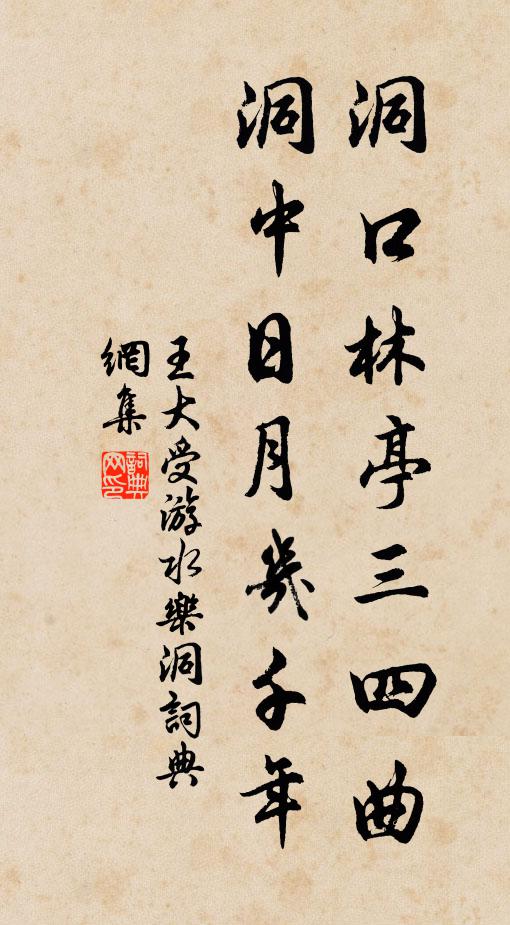 洞口林亭三四曲
洞中日月幾千年
王大受游水樂洞詞典
網集
詞典
网印